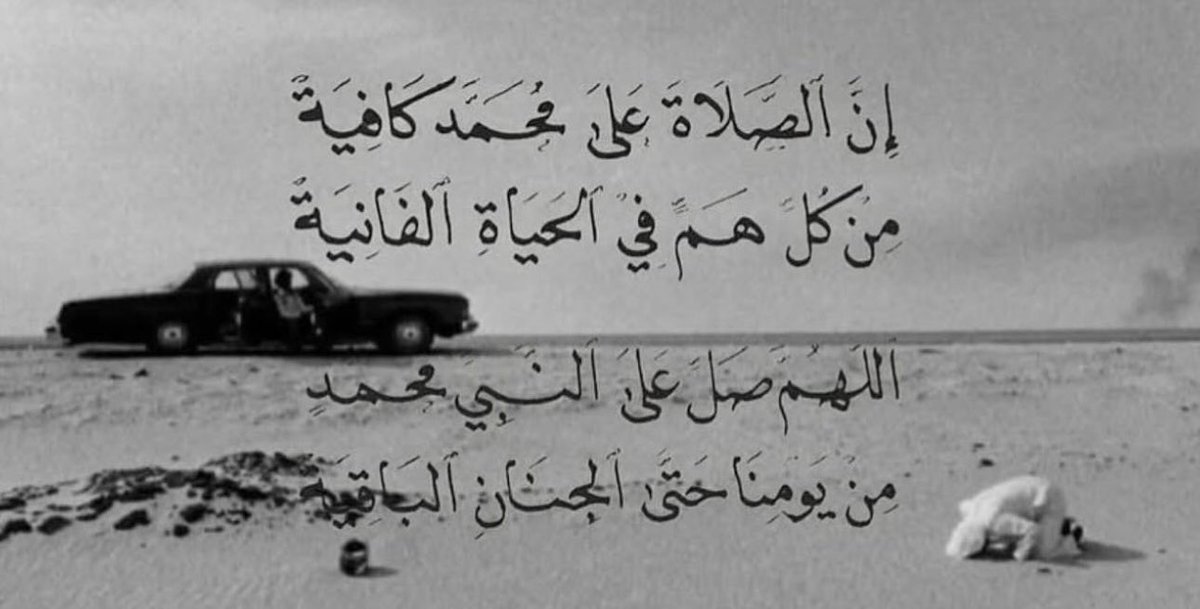 إِنَّ ٱلصَّلَاةَ عَلَىٰ مُحَمَّد كَافِيَةٌ
مِنْ كُلِّ هَمٍّ فِي ٱلحَيَاةِ ٱلفَانِيَةْ
ٱللَهُمَّ صَلِّ عَلَىٰ ٱلنَّبِيِّ مُحَمدٍ
مِنْ يَومِنَا حَتَّىٰ ٱلجِنَانِ ٱلبَاقِيَه